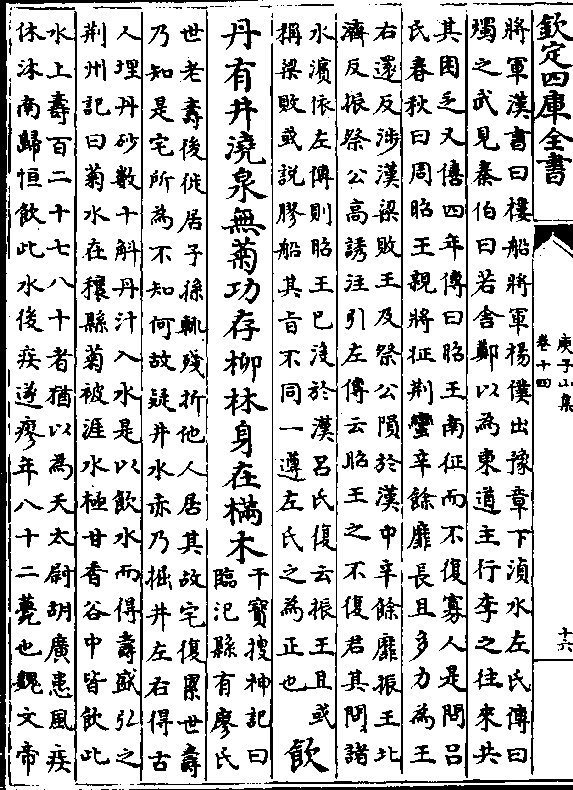 欽定四庫全書
庚子山集
卷十四
十六
將軍漢書曰樓船將軍楊僕出豫章下湞水左氏傳曰
燭之武見秦伯曰若舍鄭以為東道主行李之往來共
其困乏又僖四年傳曰昭王南征而不復寡人是問呂
氏春秋曰周昭王親將征荆蠻辛餘靡長且多力為王
右還反涉漢梁敗王及祭公隕於漢中辛餘靡振王北
濟反振祭公高誘注引左傳云昭王之不復君其問諸
水濱依左傳則昭王已沒於漢呂氏復云振王且或
稱梁敗或說膠船其旨不同一遵左氏之為正也
飲
丹有井澆泉無菊功存柳林身在樠木
干寶搜神記曰
臨汜縣有廖氏
世老壽後徙居子孫輒殘折他人居其故宅復累世壽
乃知是宅所為不知何故疑井水赤乃掘井左右得古
人埋丹砂數十斛丹汁入水是以飲水而得壽盛弘之
荆州記曰菊水在穰縣菊被涯水極甘香谷中皆飲此
水上壽百二十七八十者猶以為夭太尉胡廣患風疾
休沐南歸恒飲此水後疾遂瘳年八十二薨也魏文帝